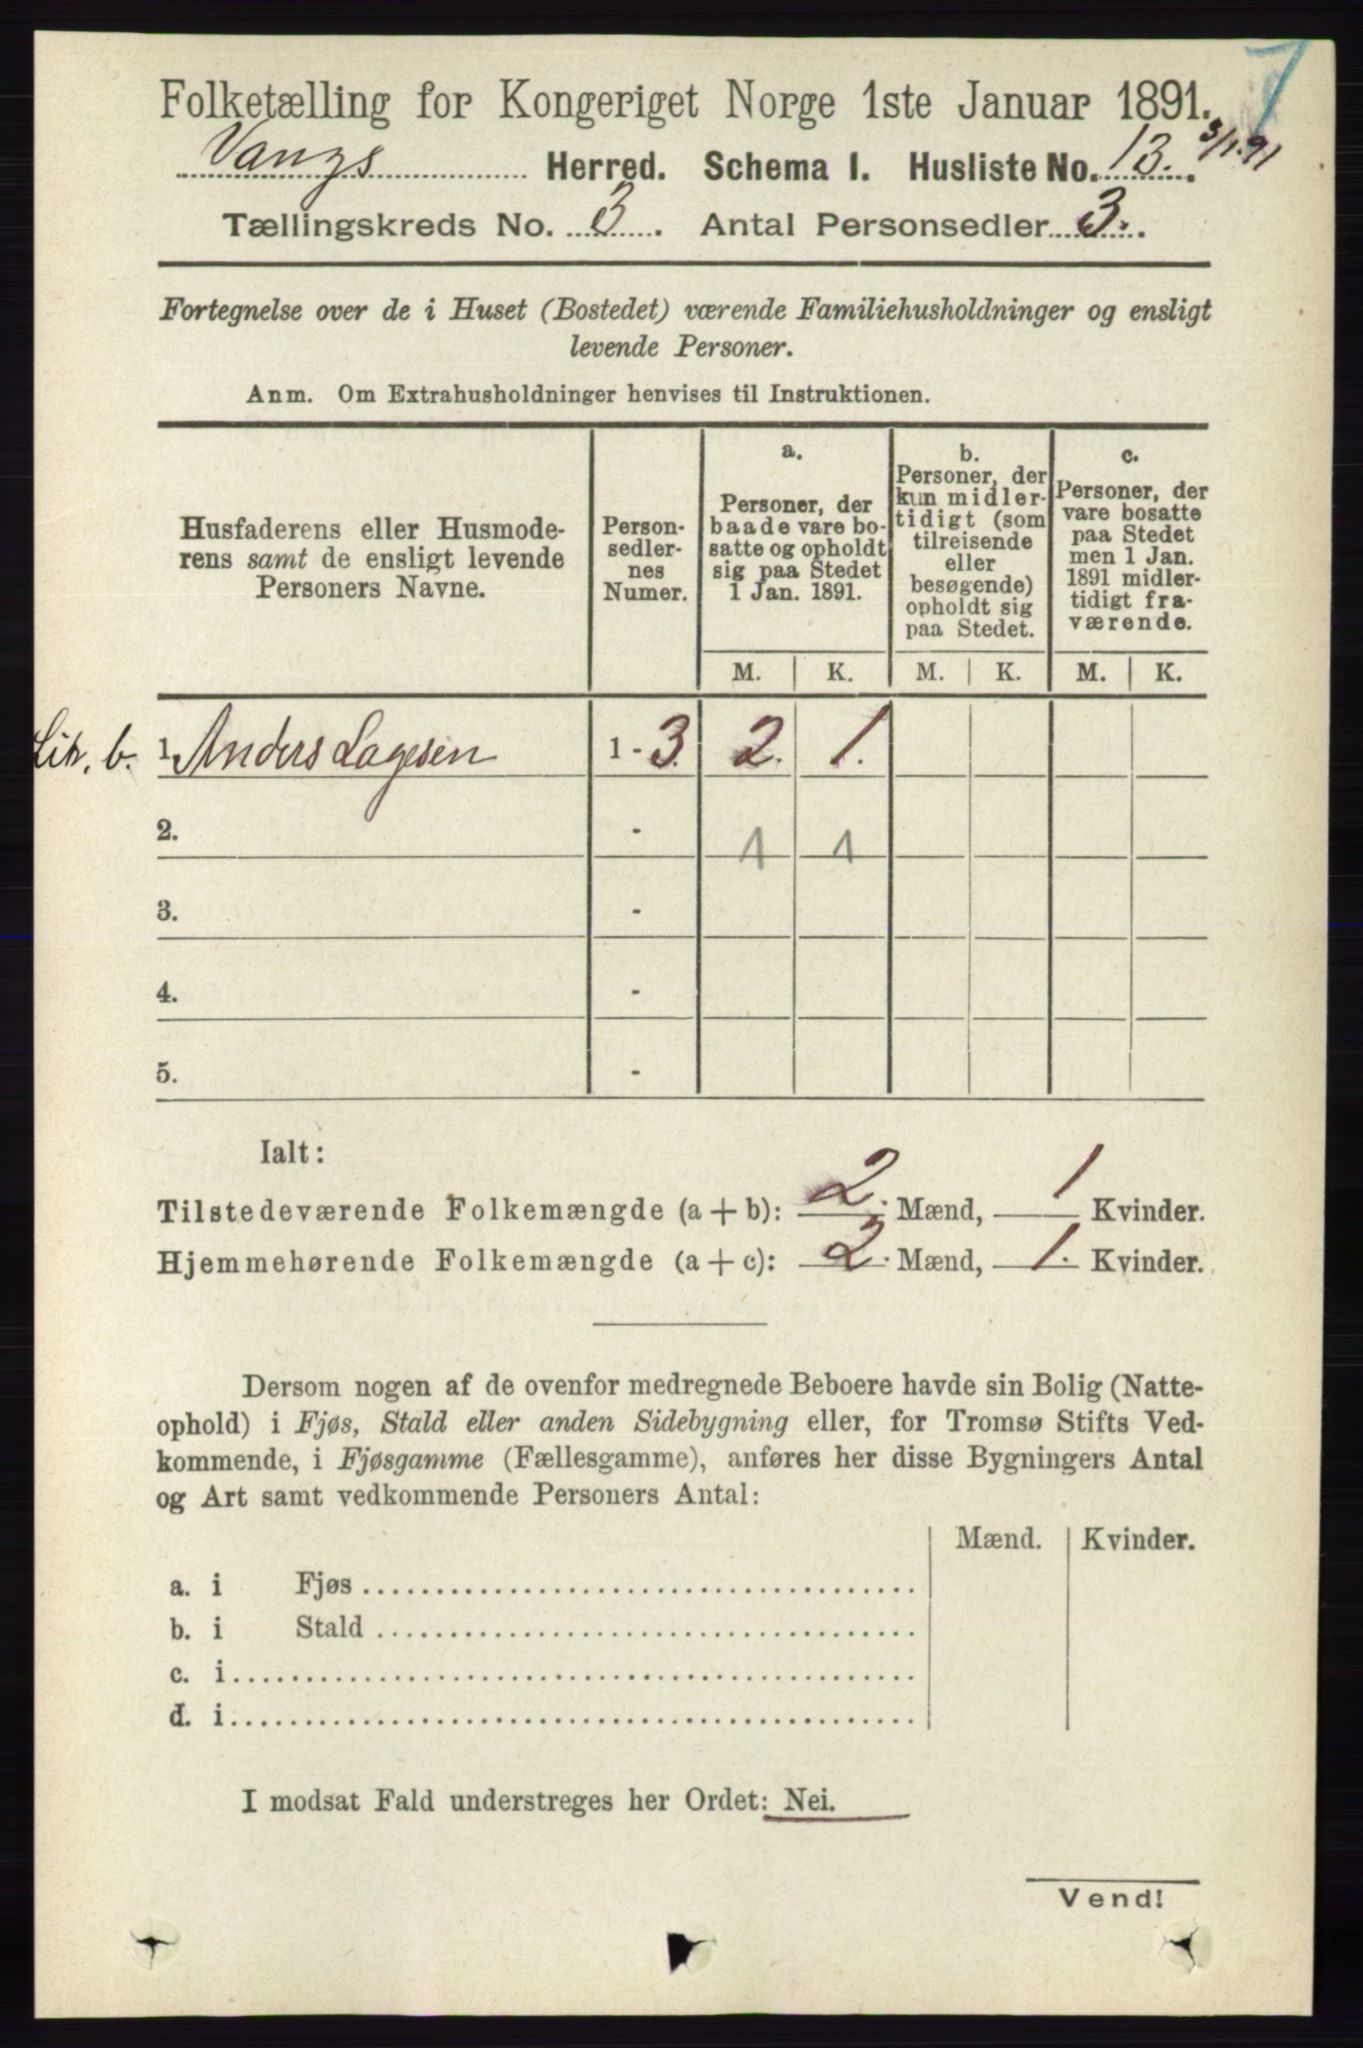 7
Folketælling for Kongeriget Norge 1ste Januar 1891.
Vangs Herred. Schema I. Husliste No. 13. 3/1.91
Tællingskreds No. 3. Antal Personsedler 3.
Fortegnelse over de i Huset (Bostedet) værende Familiehusholdninger og ensligt
levende Personer.
Anm. Om Extrahusholdninger henvises til Instruktionen.
Husfaderens eller Husmode-
rens samt de ensligt levende
Personers Navne.
Person-
sedler-
nes
Numer.
a.
Personer, der
baade vare bo-
satte og opholdt
sig paa Stedet
1 Jan. 1891.
b.
Personer, der
kun midler-
tidigt (som
tilreisende
eller
besøgende)
opholdt sig
paa Stedet.
c.
Personer, der
vare bosatte
paa Stedet
men 1 Jan.
1891 midler-
tidigt fra-
værende.
M. K. M. K. M. K.
Lit. b. 1. Anders Lagesen 1 - 3. 2. 1.
2. - 1 1
3. -
4. -
5. -
Ialt:
Tilstedeværende Folkemængde (a + b): 2. Mænd, 1 Kvinder.
Hjemmehørende Folkemængde (a + c): 2. Mænd, 1. Kvinder.
Dersom nogen af de ovenfor medregnede Beboere havde sin Bolig (Natte-
ophold) i Fjøs, Stald eller anden Sidebygning eller, for Tromsø Stifts Ved-
kommende, i Fjøsgamme (Fællesgamme), anføres her disse Bygningers Antal
og Art samt vedkommende Personers Antal:
Mænd. Kvinder.
a. i Fjøs
b. i Stald
c. i
d. i
I modsat Fald understreges her Ordet: Nei.
Vend!